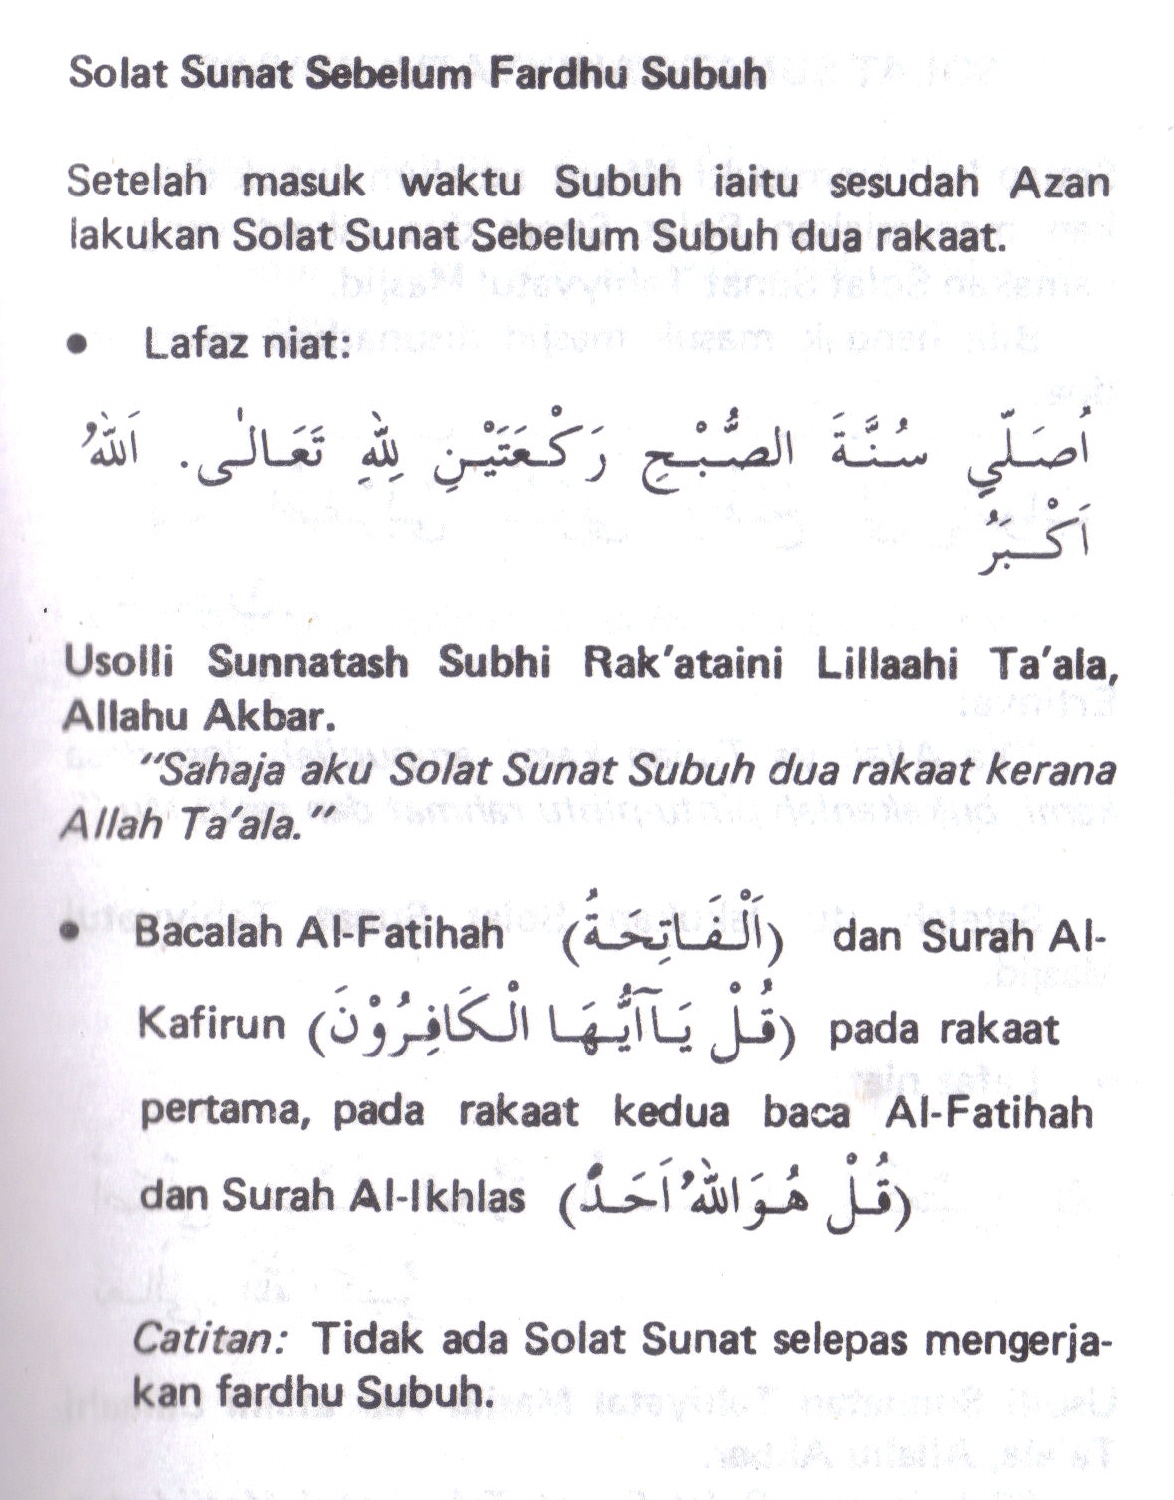 Solat Sunat Sebelum Fardhu Subuh
Setelah masuk waktu Subuh iaitu sesudah Azan
lakukan Solat Sunat Sebelum Subuh dua rakaat.
● Lafaz niat:
اُصَلِّي سُنَّةَ الصُّبْحِ رَكْعَتَيْنِ لِلّٰهِ تَعَالٰى. اَللّٰهُ
اَكْبَرُ
Usolli Sunnatash Subhi Rak'ataini Lillaahi Ta'ala,
Allahu Akbar.
"Sahaja aku Solat Sunat Subuh dua rakaat kerana
Allah Ta'ala."
● Bacalah Al-Fatihah (اَلْفَاتِحَةُ) dan Surah Al-
Kafirun (قُلْ يَاآاَيُّهَا الْكَافِرُوْنَ) pada rakaat
pertama, pada rakaat kedua baca Al-Fatihah
dan Surah Al-Ikhlas (قُلْ هُوَاللّٰهُ اَحَدٌ)
Catitan: Tidak ada Solat Sunat selepas mengerja-
kan fardhu Subuh.